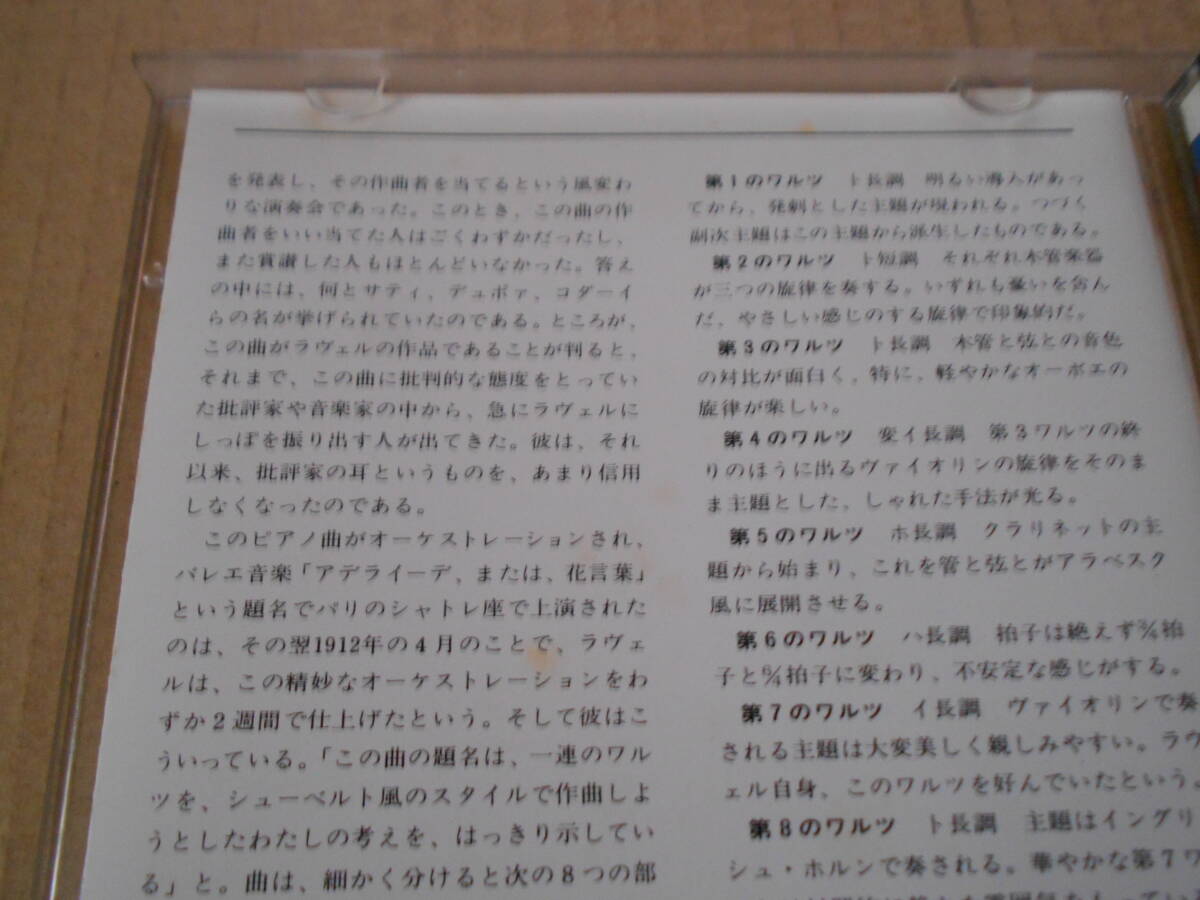 を発表し、その作曲者を当てるという風変わ
りな演奏会であった。このとき、この曲の作
曲者をいい当てた人はごくわずかだったし、
また賞讃した人もほとんどいなかった。答え
の中には、何とサティ、デュボァ、コダーイ
らの名が挙げられていたのである。ところが、
この曲がラヴェルの作品であることが判ると、
それまで、この曲に批判的な態度をとってい
た批評家や音楽家の中から、急にラヴェルに
しっぽを振り出す人が出てきた。彼は、それ
以来、批評家の耳というものを、あまり信用
しなくなったのである。
このピアノ曲がオーケストレーションされ、
バレエ音楽「アデライーデ、または、花言葉」
という題名でパリのシャトレ座で上演された
のは、その翌1912年の4月のことで、ラヴェ
ルは、この精妙なオーケストレーションをわ
ずか2週間で仕上げたという。そして彼はこ
ういっている。「この曲の題名は、一連のワル
ツを、シューベルト風のスタイルで作曲しよ
うとしたわたしの考えを、はっきり示してい
る」と。曲は、細かく分けると次の8つの部
第1のワルツ ト長調 明るい導入があっ
てから、発剌とした主題が現われる。つづく
副次主題はこの主題から派生したものである。
第2のワルツ ト短調 それぞれ木管楽器
が三つの旋律を奏する。いずれも憂いを含ん
だ、やさしい感じのする旋律で印象的だ。
第3のワルツ ト長調 木管と弦との音色
の対比が面白く、特に、軽やかなオーボエの
旋律が楽しい。
第4のワルツ 変イ長調 第3ワルツの終
りのほうに出るヴァイオリンの旋律をそのま
ま主題とした、しゃれた手法が光る。
第5のワルツ ホ長調 クラリネットの主
題から始まり、これを管と弦とがアラベスク
風に展開させる。
第6のワルツ ハ長調 拍子は絶えず¾拍
子と6/4拍子に変わり、不安定な感じがする。
第7のワルツ イ長調 ヴァイオリンで奏
される主題は大変美しく親しみやすい。ラヴ
ェル自身、このワルツを好んでいたという。
第8のワルツ ト長調 主題はイングリ
シュ・ホルンで奏される。華やかな第7ワ